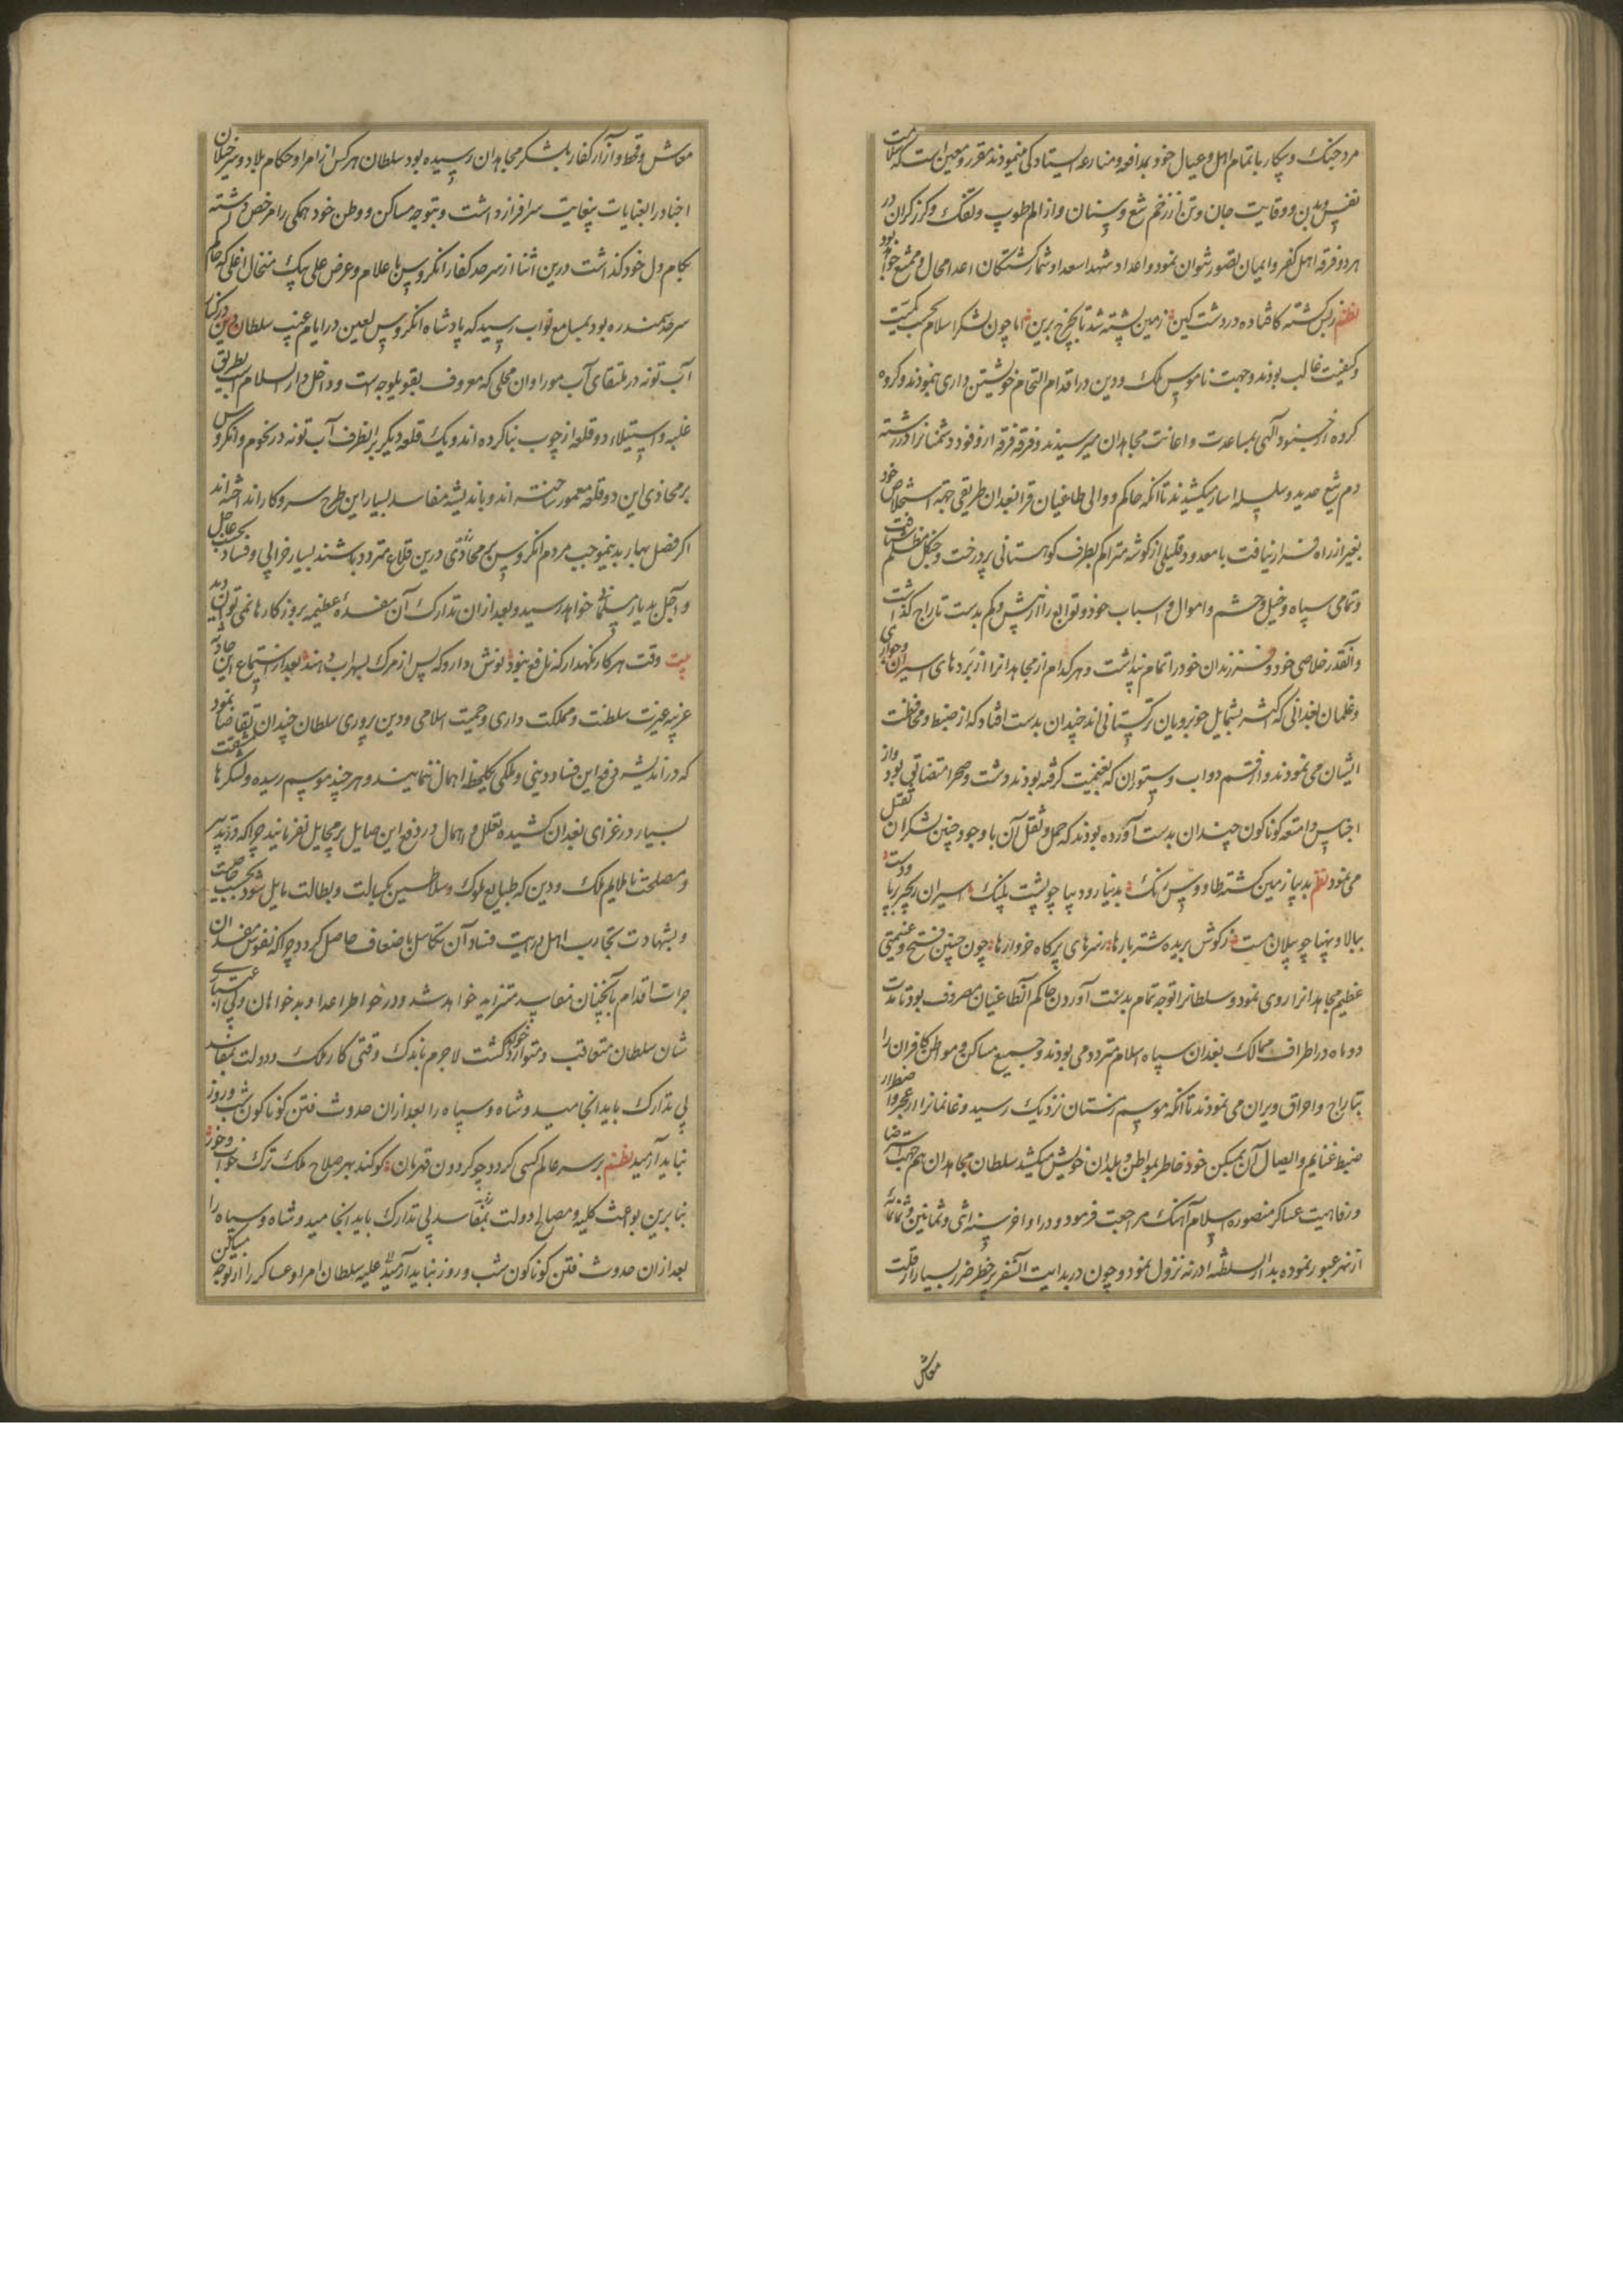 مرد جنک و پیکار با تمام اهل و عیال خود بمدافعه و منازعه ایستادکی مینمودند مقرر و معین است که سلامت
نفس و بدن و وقایت جان و تن از زخم تیغ و سنان و از الم طوپ و تفنک و کرز کران در
هر دو فرقه اهل کفر و ایمان تصور نتوان نمود و اعداد شهدا سعدا و شمار کشتکان اعدا محال و ممتنع خواهد بود
نظم ز بس کشته کافتاده در دشت کین زمین پشته شد تا بچرخ برین اما چون لشکر اسلام بحسب کمیت
و کیفیت غالب بودند و جهت ناموس ملک و دین در اقدام التحام خویشتن داری ننمودند و کروه
کروه از جنود الهی بمساعدت و اعانت مجاهدان میرسیدند و فرقه فرقه از وفود دشمنانرا در رشته
دم تیغ حدید و سلسله اسار میکشیدند تا آنکه حاکم و والی طاغیان قرا بغدان طریقی جهة استخلاص خود
بغیر از راه فرار نیافت با معدود قلیلی از کوشه متراکم بطرف کوهستانی پر درخت و جنکل مظلم شتافت
و تمامی سپاه و خیل و حشم و اموال و اسباب خود و توابع را از بیش و کم بدست تاراج کذاشت
و آنقدر خلاصی خود و فرزندان خود را تمام نپنداشت و هر کدام از مجاهدانرا از برده های اسیران و جواری
و غلمان بغدانی که اکثر بشمایل خوبرویان ترکستانی اند چندان بدست افتاد که از ضبط و محافظت
ایشان می نمودند و از قسم دواب و ستوران که بغنیمت کرفته بودند دشت و صحرا متضایق بود و از
اجناس و امتعه کوناکون چندان بدست آورده بودند که حمل و نقل آن با وجود چنین لشکر ان تعقل
می نمود نظم بدیبا زمین کشته طاووس رنک بدینار و دیبا چو پشت پلنک اسیران زنجیر بر پا و دست
ببالا و پهنا چو پیلان مست ز کوش بریده شتر بارها ز سرهای پر کاه خروارها چون چنین فتح و غنیمتی
عظیم مجاهدانرا روی نمود و سلطانرا توجه تمام بدست آوردن حاکم آن طاغیان مصروف بود تا مدت
دو ماه در اطراف ممالک بغدان سپاه اسلام متردد می بودند و جمیع مساکن و مواطن کافران را
بتاراج و احراق ویران می نمودند تا آنکه موسم زمستان نزدیک رسید و غانمانرا از عجز و اضطرار
ضبط غنایم و ایصال آن بمسکن خود خاطر بمواطن و بلدان خویش میکشید سلطان مجاهدان هم جهت استرضا
و رفاهیت عساکر منصوره اسلام آهنک مراجعت فرمود و در اواخر سنه اثنی و ثمانین و ثمانمائه
از نهر عبور نموده بدار السلطنه ادرنه نزول نمود و چون در بدایت آن سفر پر خطر ضرر بسیار از قلت
معاش
معاش و قحط و آزار کفار بلشکر مجاهدان رسیده بود سلطان هر کس از امرا و حکام بلاد و سرخیلان
اجناد را بعنایات بیغایت سرافراز داشت و بتوجه مساکن و وطن خود همکی را مرخص داشته
بکام دل خود کذاشت درین اثنا از سرحد کفار انکروس باعلام و عرض علی بیک میخال اغلی که حاکم
سرحد سمندره بود بمسامع نواب رسید که پادشاه انکروس لعین در ایام غیبت سلطان دین در کنار
آب تونه در ملتقای آب موراوان محلی که معروف بقویلوجه است و داخل دار السلام است بطریق
غلبه و استیلا دو قلعه از چوب بنا کرده اند و یک قلعه دیکر بر آنطرف آب تونه در تخوم انکروس
بر محاذی این دو قلعه معمور ساخته اند و باندیشه مفاسد بسیار این طرح سر و کار انداخته اند
اکر فصل بهار بدینموجب مردم انکروس بر محاذی درین قلاع متردد باشند بسیار خرابی و فساد بحسب عاجل
و آجل بدیار مسلمانی خواهد رسید و بعد از آن تدارک آن مفسده عظیمه بروزکارها نمی توان دید
بیت وقت هر کار نکهدار که نافع نبود نوش دارو که پس از مرک بسهراب دهند بعد از استماع این حادثه
غریبه غیرت سلطنت و مملکت داری و حمیت اسلامی و دین پروری سلطان چندان تقاضا نمود
که در اندیشه دفع این فساد دینی و ملکی یکلحظه اهمال ننمایند و هر چند موسم رسیده و لشکرها مشقت
بسیار در غزای بغدان کشیده تعلل و اهمال در دفع این صایل بر مخایل نفرمایند چرا که در تدبیر
و مصلحت نا ملایم ملک و دین که طبایع ملوک و سلاطین بکسالت و بطالت مایل شود بحسب حکمت
و بشهادت تجارب اهل درایت فساد آن تکاسل باضعاف حاصل کردد چرا که نفوس مفسدان
جرات اقدام بآنچنان مفاسد متزاید خواهد شد و در خواطر اعدا و بدخواهان بی اعتباری
شان سلطان متعاقب و متوارد خواهد کشت لاجرم باندک وقتی کار ملک و دولت بمفاسد
بی تدارک باید انجامید و شاه و سپاه را بعد از آن حدوث فتن کوناکون شب و روز
نباید آرمید نظم بر سر عالم کسی کردد چو کردون قهرمان کو کند بهر صلاح ملک ترک خواب و خور
بنابرین بواعث کلیه و مصالح دولت بمفاسد بی تدارک باید انجامید و شاه و سپاه را
بعد از آن حدوث فتن کوناکون شب و روز نباید آرمید علیه سلطان امرا و عساکر را از توجه مساکن